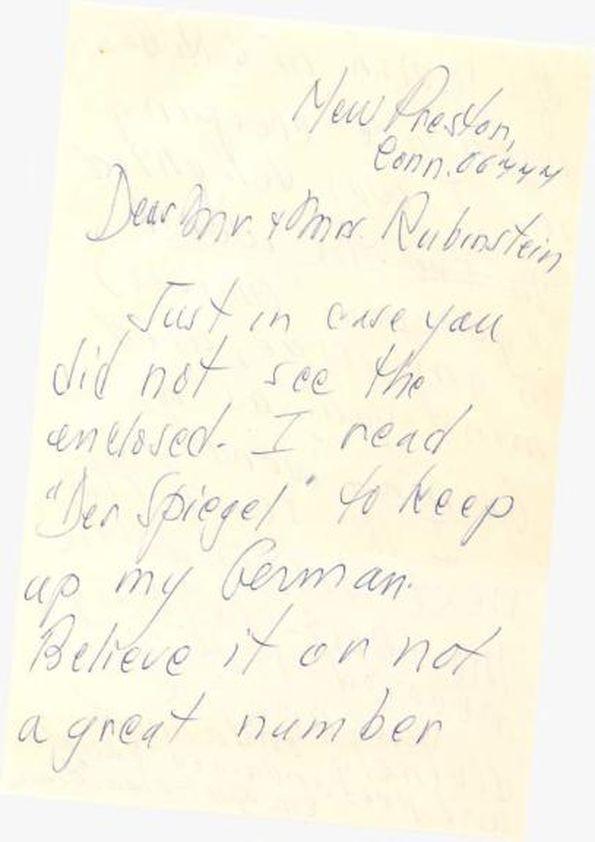 New Preston,
Conn. 06777
Dear Mr. & Mrs. Rubinstein
Just in case you
did not see the
enclosed. I read
"Der Spiegel" to keep
up my German.
Believe it or not
a great number